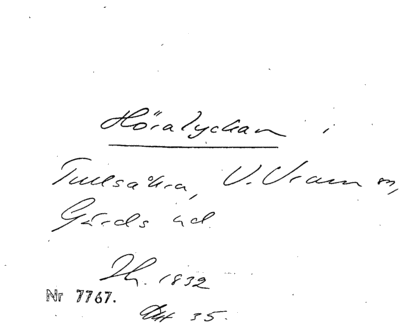 Höralyckan i
Tullsåkra, V. Vram sn,
Gärds hd
Sk. 1832
Nr 7767.
Akt 35.